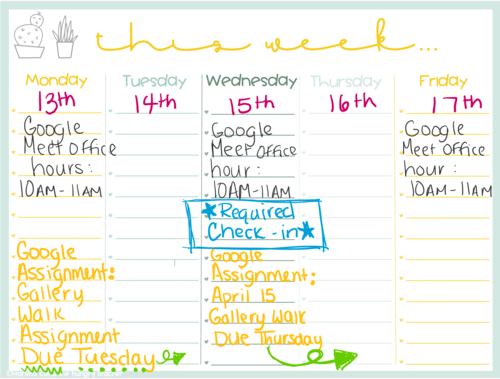 this week...
Monday
Tuesday
Wednesday
Thursday
Friday
13th
14th
15th
16th
17th
Google
Meet Office
hours:
10AM-11AM
Google
Assignment:
Gallery
Walk
Assignment
Due Tuesday
Google
Meet Office
hour:
10AM-11AM
*Required
Check-in*
Google
Assignment:
April 15
Gallery Walk
Due Thursday
Google
Meet Office
hour:
10AM-11AM